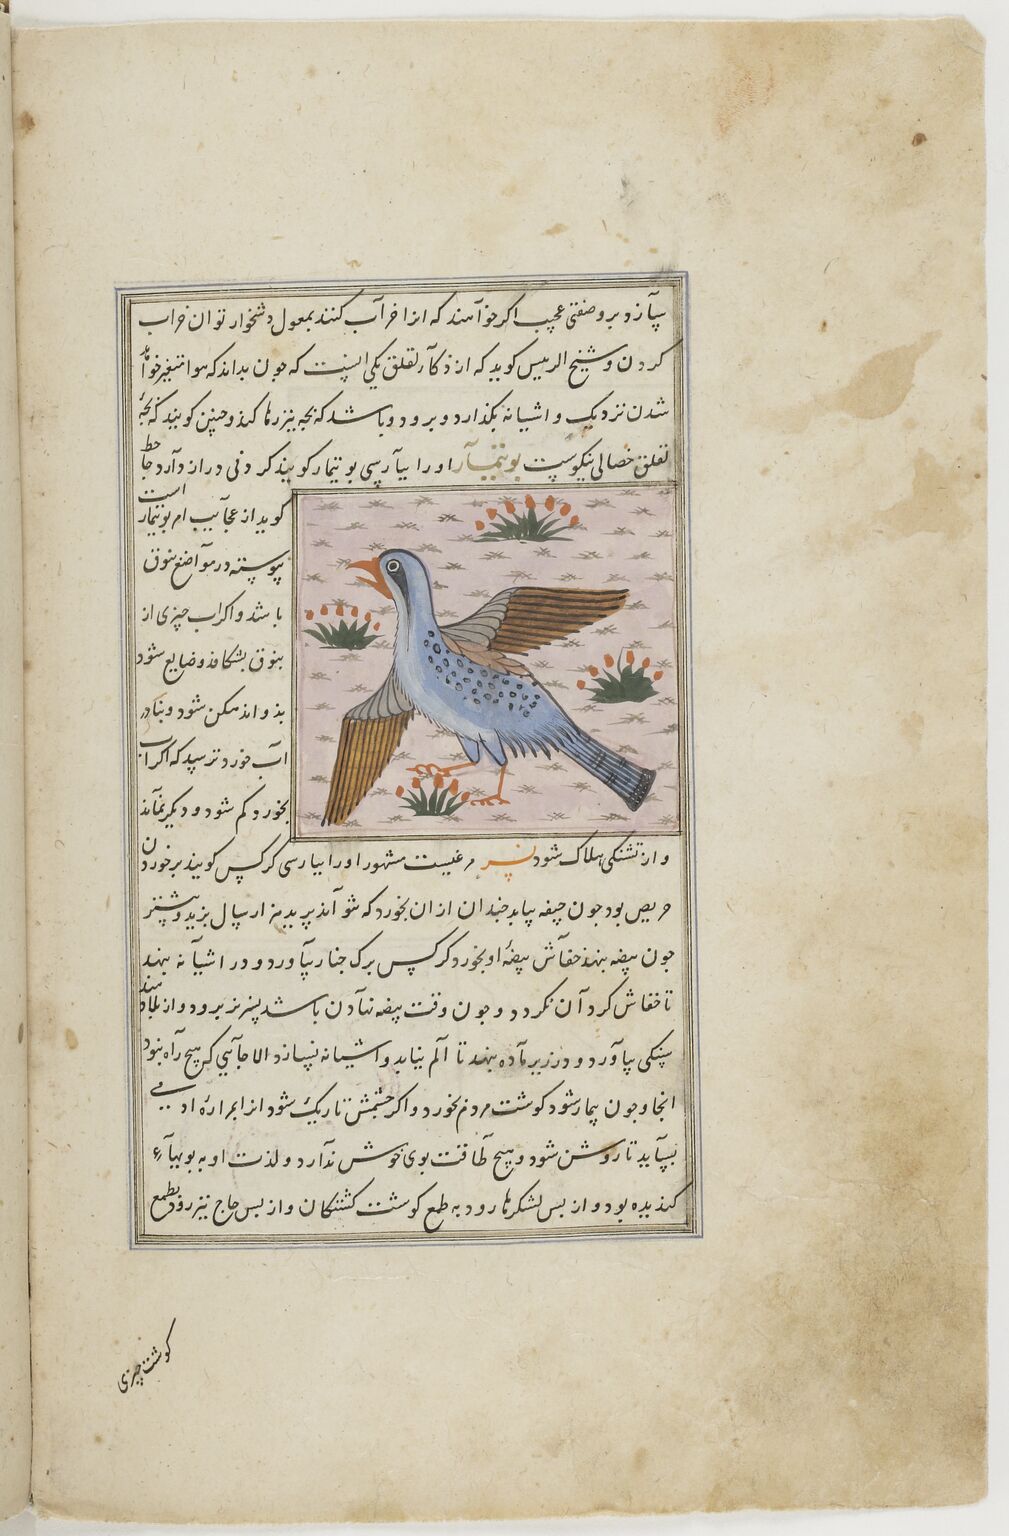 بیآزد بر وصفتی عجیب اکر خوآهند که انرا خرآب کنند بمعول دشخوار توان خراب
کردن و شیخ الرئیس کوید که از ذکآء لقلق یکی اینست که جون بداند که هوا متغیر خوآهد
شدن نزدیک و اشیانه بکذارد و برود و باشد که بجه نیز رها کند و جنین کویند که بجه
لقلق خصالی نیکوست بوتیمآر او را بپآرسی بوتیمار کویند کردنی دراز دآرد جاحظ
کوید از عجآیب امر بوتیمار است
پیوسته در موآضع بثوق
باشد و اکر اب جیزی از
بثوق بشکافد و ضایع شود
بذو اندهکن شود و نیارد
آب خورد ترسید که اکر اب
بخورد کم شود و دیکر نمآند
و از تشنکی هلاک شود نسر مرغیست مشهور او را بپارسی کرکس کویند بر خوردن
حریص بود جون جیفه بیابد جندان از ان بخورد که نتوآند پرید هزار سال بزید و بیشتر
جون بیضه بنهد خفآش بیضهٔ او بخورد کرکس برک جنار بیآورد و در اشیآنه بنهد
تا خفاش کرد آن نکردد و جون وقت بیضه نهآدن باشد نسر نر برود و از بلاد هند
سنکی بیآورد و در زیر مآده بنهد تا آلم نیابد و اشیانه نسازد الا جآیی که هیج رآه نبود
انجا و جون بیمار شود کوشت مردم بخورد و اکر جشمش تاریک شود از مرارهٔ ادمی
بسآید تا روشن شود و هیج طآقت بوی خوش ندآرد و لذت او به بویهآء
کندیده بود و از بس لشکرها رود به طمع کوشت کشتکان و از بس حاج نیز رود بطمع
کوشت جیزی